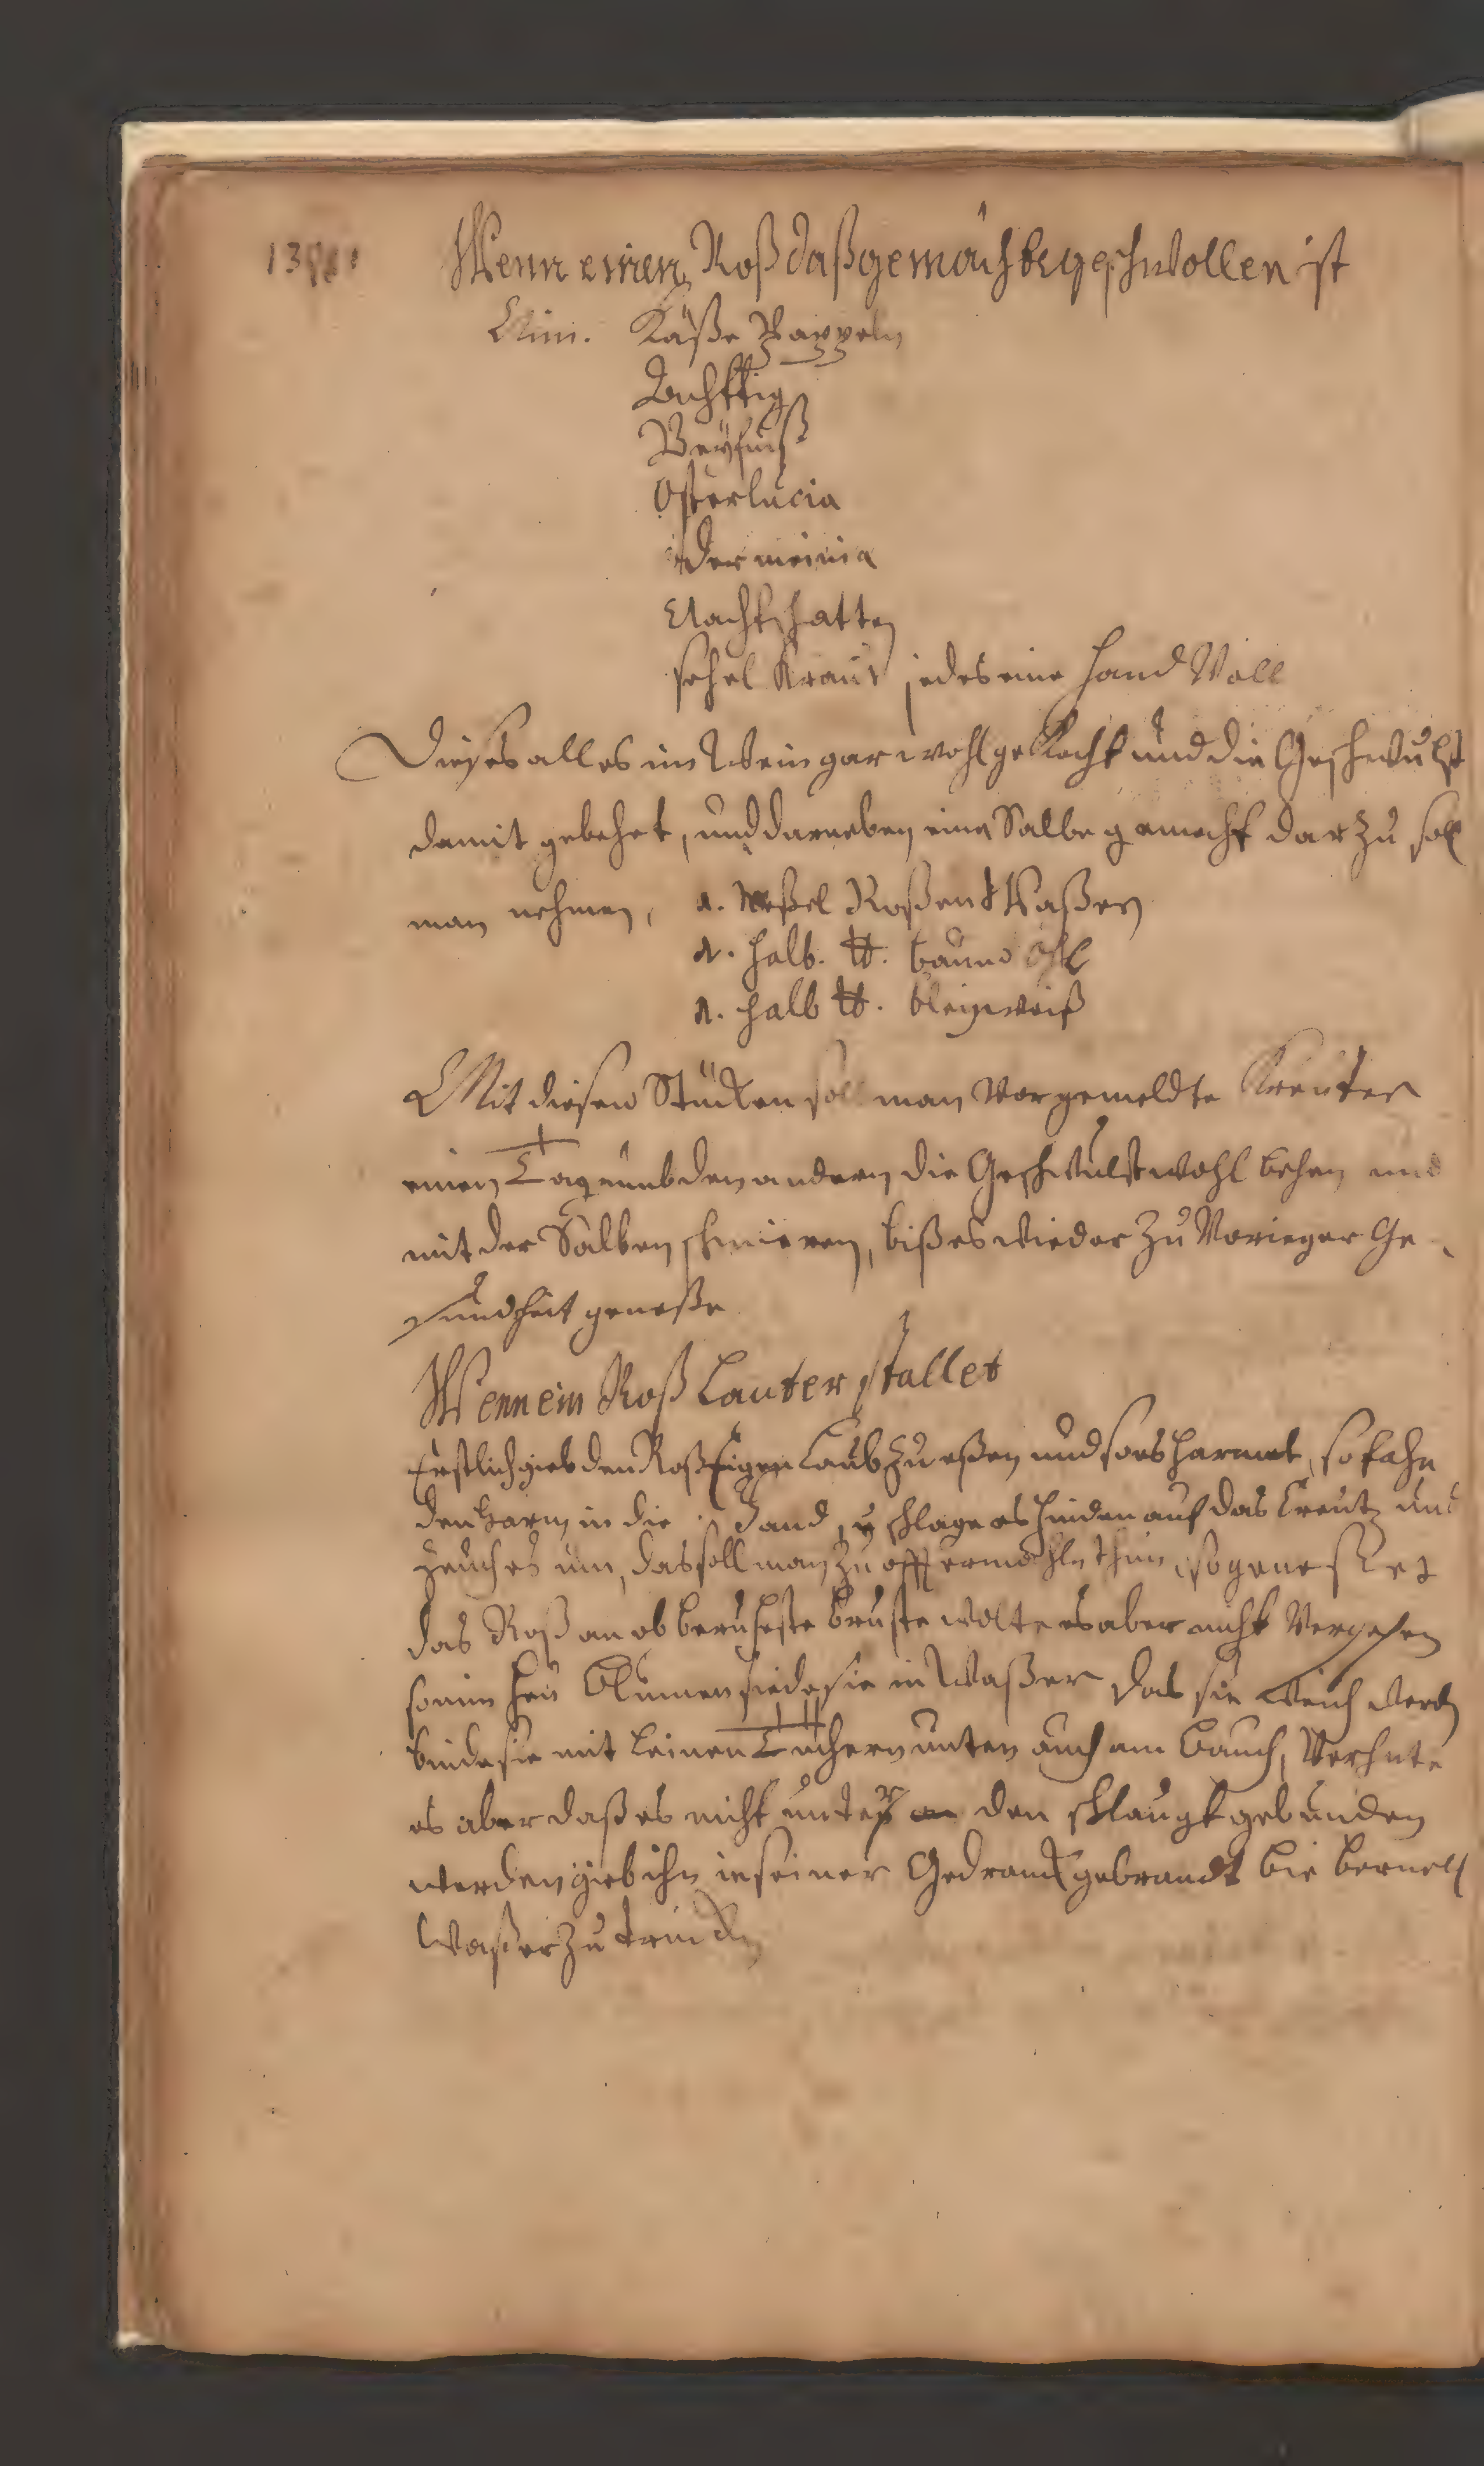 Wenn einen Roß daß gemächte geschwollen ist
Nim. Käße Pappeln
Attich
Beyfuß
Osterlucia
Nachtschatten
schel Kraut jedes eine Hand Voll
Dieses alles im Wein gar wohl gekocht und die Geschwulst
damit gebehet, und darneben eine Salbe gemacht darzu soll
man nehmen, 1. Neßel Roßen Waßer
1. halb. ℔. baum Öhl
1. halb ℔. bleyweiß
Mit diesen Stücken soll man Vorgemeldte Kreuter
einen Tag umb den andern die Geschwulst wohl behen und
mit der Salben schmieren, biß es wieder zu Voriger Ge-
sundheit geneße
Wenn ein Roß Lauter stallet
Erstlich gieb den Roß Eigen Laub zu eßen und so es harnet, so fahe
den Harn in die Hand, u schlage es hinden auf das Creutz und
zeuch es um, das soll man zu offtermahln thun, so geneßet
das Roß an ob beruheste bruste wolte es aber nicht Vergehen
so nim Heu Blumen siede sie in Waßer das sie Weich werden
binde sie mit Leinen Tüchern unten auch am Bauch, Verhute
es aber daß es nicht unter den schlaugt gebunden
werden gieb ihn in seiner Gedranck gebrandt bie bernell
Waßer zu trincken